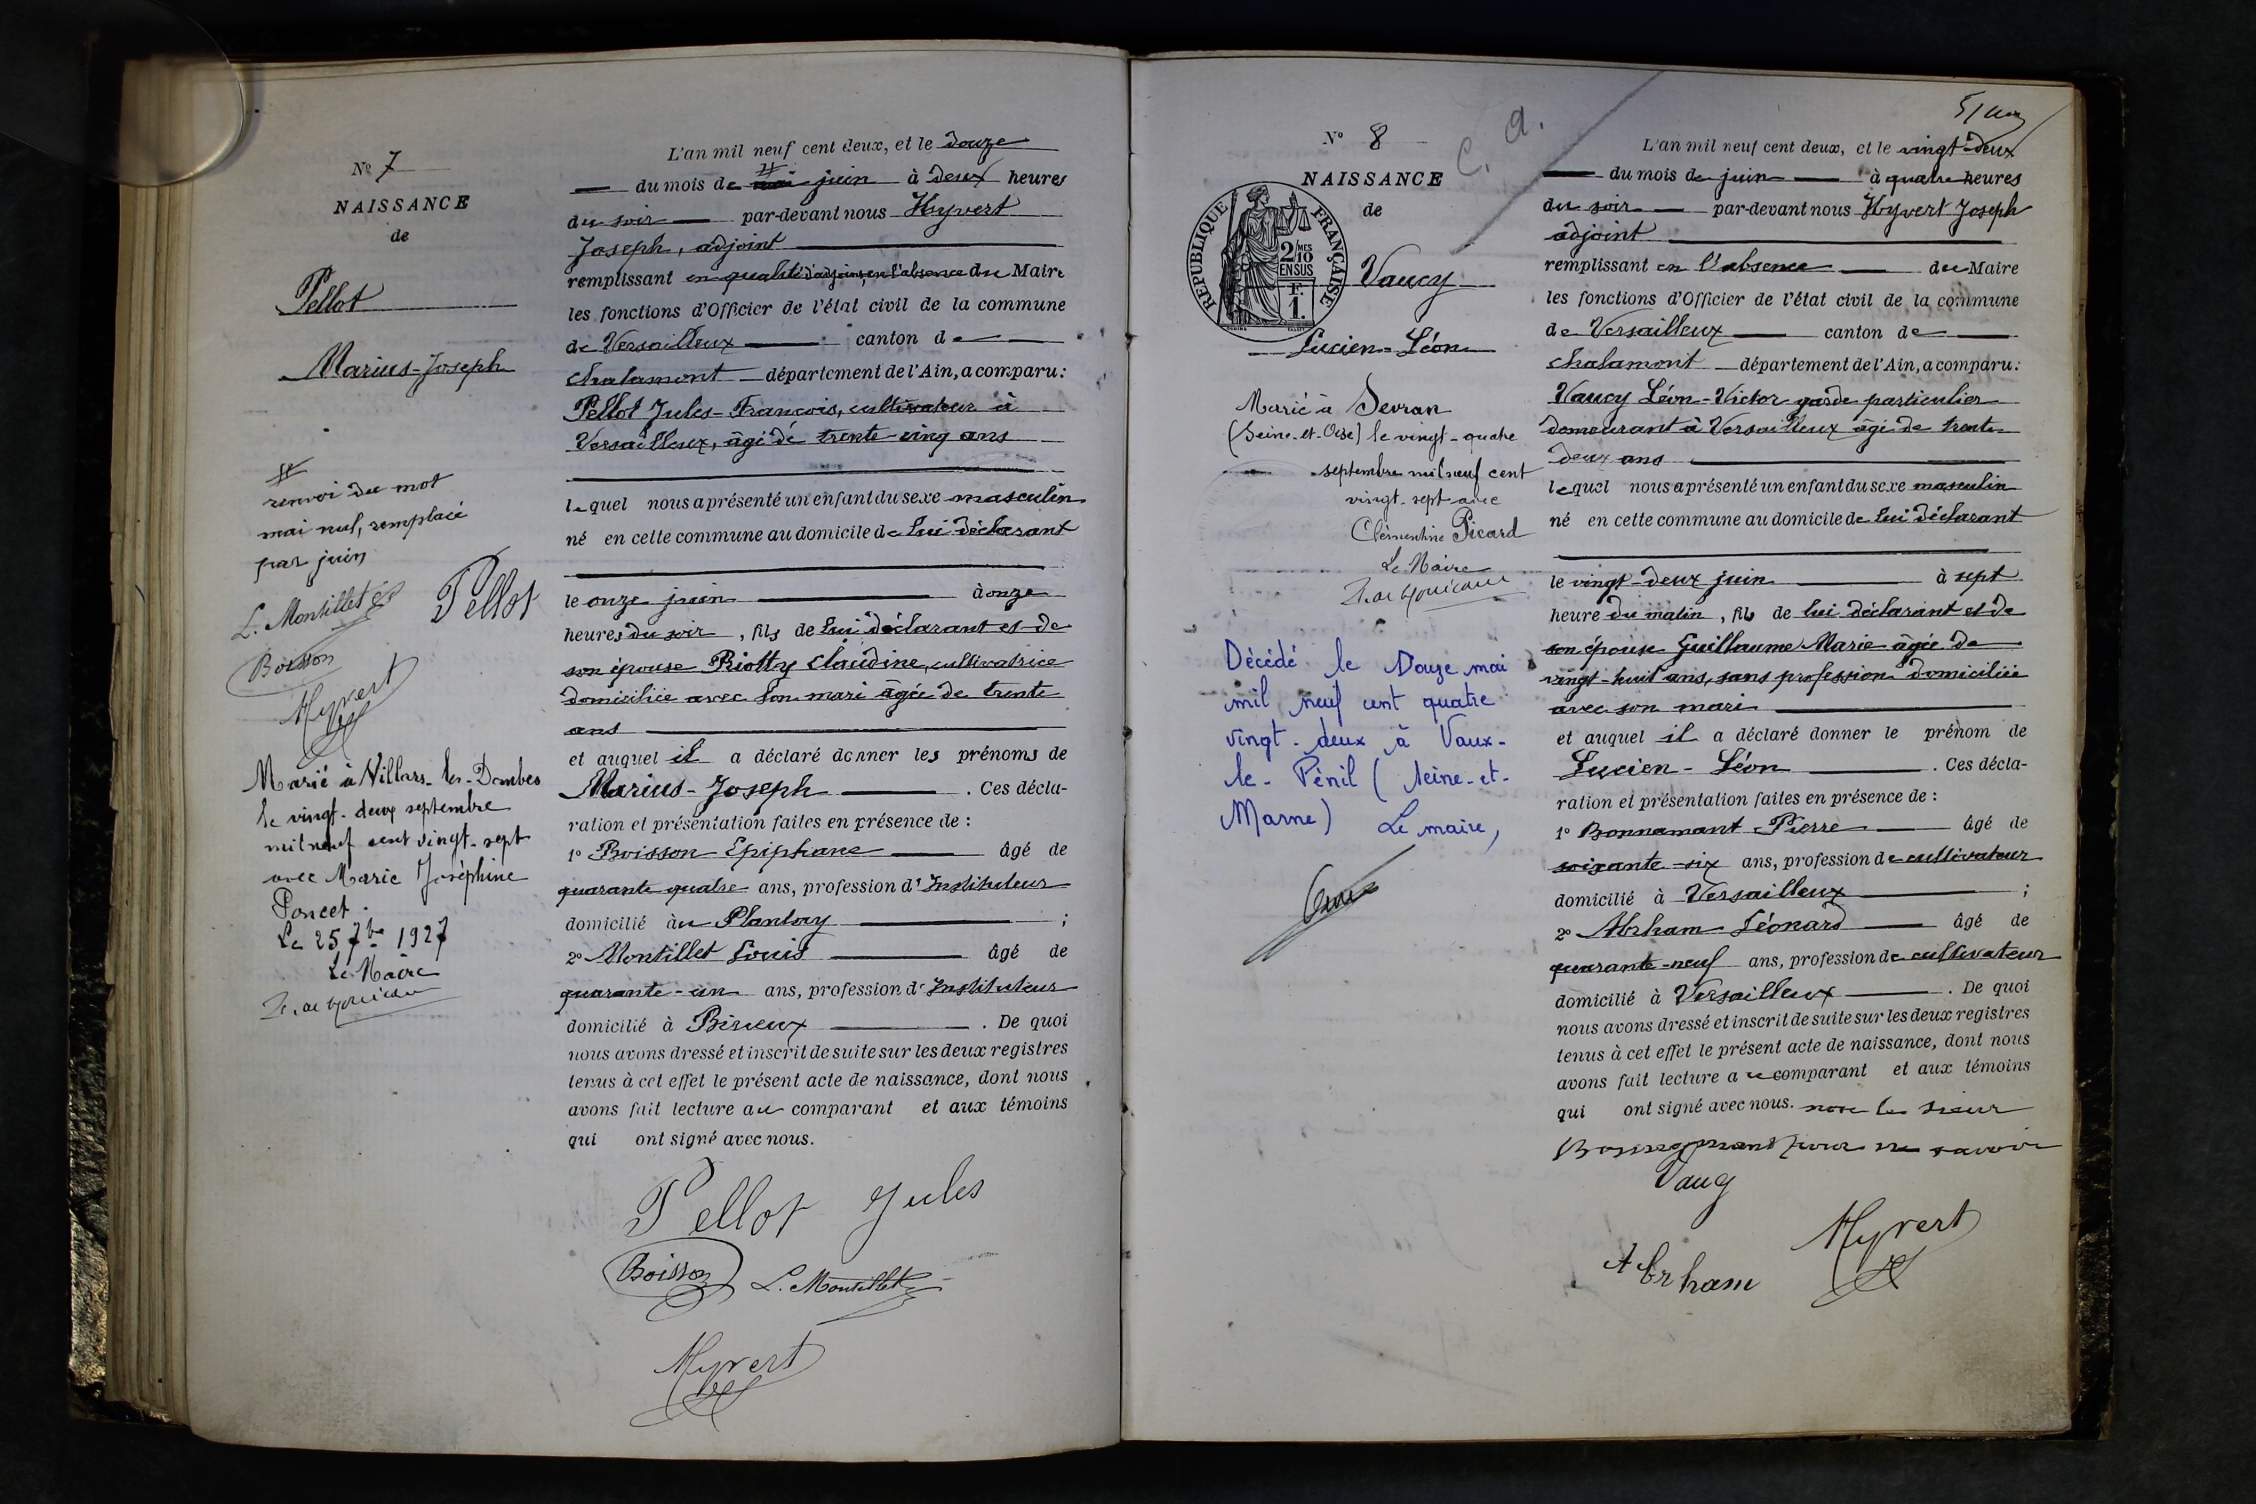 Nº 7
NAISSANCE
de
Pellot
Marius-Joseph
renvoi du mot
mai nul, remplacé
par juin
L. Montillet
Pellot
Boisson
Hyvert
Marié à Villars-les-Dombes
le vingt-deux septembre
mil neuf cent vingt-sept
avec Marie Joséphine
Poncet.
Le 25 7bre 1927
Le Maire
L'an mil neuf cent deux, et le douze
du mois de mai juin à deux heures
du soir par-devant nous Hyvert
Joseph, adjoint
remplissant en qualité d'adjoint, en l'absence du Maire
les fonctions d'Officier de l'état civil de la commune
de Versailleux canton de
Chalamont département de l'Ain, a comparu:
Pellot Jules-François, cultivateur à
Versailleux, âgé de trente-cinq ans
lequel nous a présenté un enfant du sexe masculin
né en cette commune au domicile de lui déclarant
le onze juin à onze
heures du soir, fils de lui déclarant et de
son épouse Riotty Claudine, cultivatrice
domiciliée avec son mari âgée de trente
ans
et auquel il a déclaré donner les prénoms de
Marius-Joseph. Ces décla-
ration et présentation faites en présence de :
1º Boisson Epiphane âgé de
quarante quatre ans, profession d'Instituteur
domicilié au Plantay ;
2º Montillet Louis âgé de
quarante-un ans, profession d'Instituteur
domicilié à Birieux. De quoi
nous avons dressé et inscrit de suite sur les deux registres
tenus à cet effet le présent acte de naissance, dont nous
avons fait lecture au comparant et aux témoins
qui ont signé avec nous.
Pellot Jules
Boisson L. Montillet
Hyvert
C. a.
Nº 8
NAISSANCE
de
RÉPUBLIQUE FRANÇAISE
2/10 MES
EN SUS
F.
1.
Vaucy
Lucien-Léon
Marié à Sevran
(Seine-et-Oise) le vingt-quatre
septembre mil neuf cent
vingt-sept avec
Clémentine Picard
Le Maire
Décédé le Douze mai
mil neuf cent quatre
vingt-deux à Vaux-
le-Pénil (Seine-et-
Marne) Le maire,
L'an mil neuf cent deux, et le vingt-deux
du mois de juin à quatre heures
du soir par-devant nous Hyvert Joseph
adjoint
remplissant en l'absence du Maire
les fonctions d'Officier de l'état civil de la commune
de Versailleux canton de
Chalamont département de l'Ain, a comparu:
Vaucy Léon-Victor garde particulier
demeurant à Versailleux âgé de trente-
deux ans
lequel nous a présenté un enfant du sexe masculin
né en cette commune au domicile de lui déclarant
le vingt-deux juin à sept
heure du matin, fils de lui déclarant et de
son épouse Guillaume Marie âgée de
vingt-huit ans, sans profession domiciliée
avec son mari
et auquel il a déclaré donner le prénom de
Lucien-Léon. Ces décla-
ration et présentation faites en présence de :
1º Bonnamant Pierre âgé de
soixante-six ans, profession de cultivateur
domicilié à Versailleux ;
2º Abrham Léonard âgé de
quarante-neuf ans, profession de cultivateur
domicilié à Versailleux. De quoi
nous avons dressé et inscrit de suite sur les deux registres
tenus à cet effet le présent acte de naissance, dont nous
avons fait lecture au comparant et aux témoins
qui ont signé avec nous. non le sieur
Bonnamant pour ne savoir
Vaucy
Hyvert
Abrham